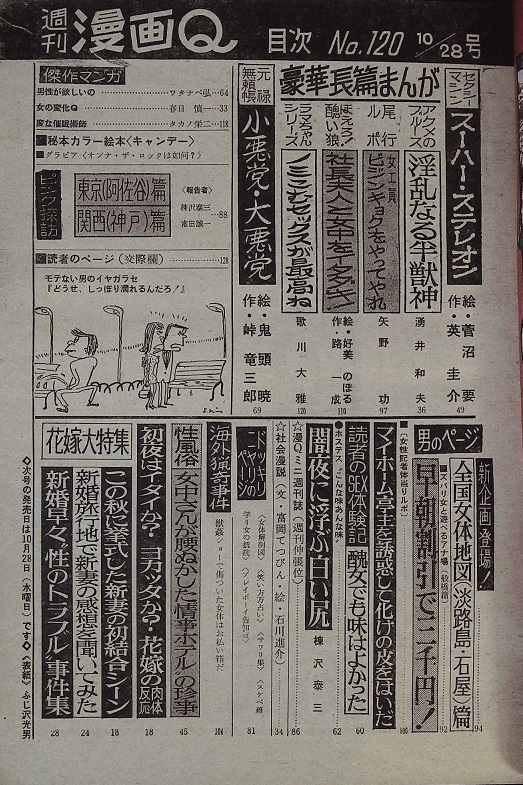 週刊 漫画Q 目次 No.120 10/28号
豪華長篇まんが
セクシーマシン
スーパー・ステレオン
絵・菅沼 要
作・英 圭介
49
アクメのフルース
淫乱なる半獣神
湧井和夫
36
尾行ルポ
女子工員
ピンキョクをやってやれ
矢野 功
97
ほえろ!醜い狼
社長夫人と女中をイタダキ!
絵・好美のぼる
作・路 一成
110
ラマちゃんシリーズ
ノミこむセックスが最高ね
歌川大雅
120
元禄無頼帳
小悪党・大悪党
絵・鬼頭 暁
作・峠 竜三郎
69
傑作マンガ
男性が欲しいの ワタナベ弘…64
女の変化Q 春日 慎…33
変な催眠術師 タカノ栄二…118
■秘本カラー絵本<キャンデー>
■グラビア<オンナ・ザ・ロックは如何?>
ピンク探訪
東京(阿佐谷)篇
関西(神戸)篇
<報告者>
棟沢泰三
富田誠一
…88
■読者のページ(交際欄)…120
モテない男のイヤガラセ
『どうせ、しっぽり濡れるんだろ!』
男のページ
新企画登場!
全国女体地図(淡路島・石屋)篇
94
【ズバリ女と遊べるアナ場】(板橋篇)
早朝割引で二千円!
92
【女性記者体当りルポ】
マイホーム亭主を誘惑して化けの皮をはいだ
106
読者のSEX体験記 醜女でも味はよかった
60
●ホステス"こんな味あんな味"
闇夜に浮ぶ白い尻
棟沢泰三
62
☆漫Qミニ週刊誌(週刊伸張位)
86
☆社会漫説(文・富岡てっぴん・絵・石川進介)
34
ドッキリページのヤマ
<女体解剖図> <笑い方占い> <サワリ集> <スケベ雑学> <女の抵抗> <プレイボーイ告知板>
81
海外猟奇事件
獣姦ショーで傷ついた女体はお払い箱だ
104
性風俗 女中さんが腰ぬかした情事ホテルの珍事
45
花嫁大特集
初夜はイタイか?ヨカッタか?・花嫁の肉体反応
18
この秋に挙式した新妻の初結合シーン
18
新婚旅行地で新妻の感想を聞いてみた
24
新婚早々・性のトラブル事件集
28
◇次号の発売日は10月28日(水曜日)です◇<表紙>ふじ沢光男